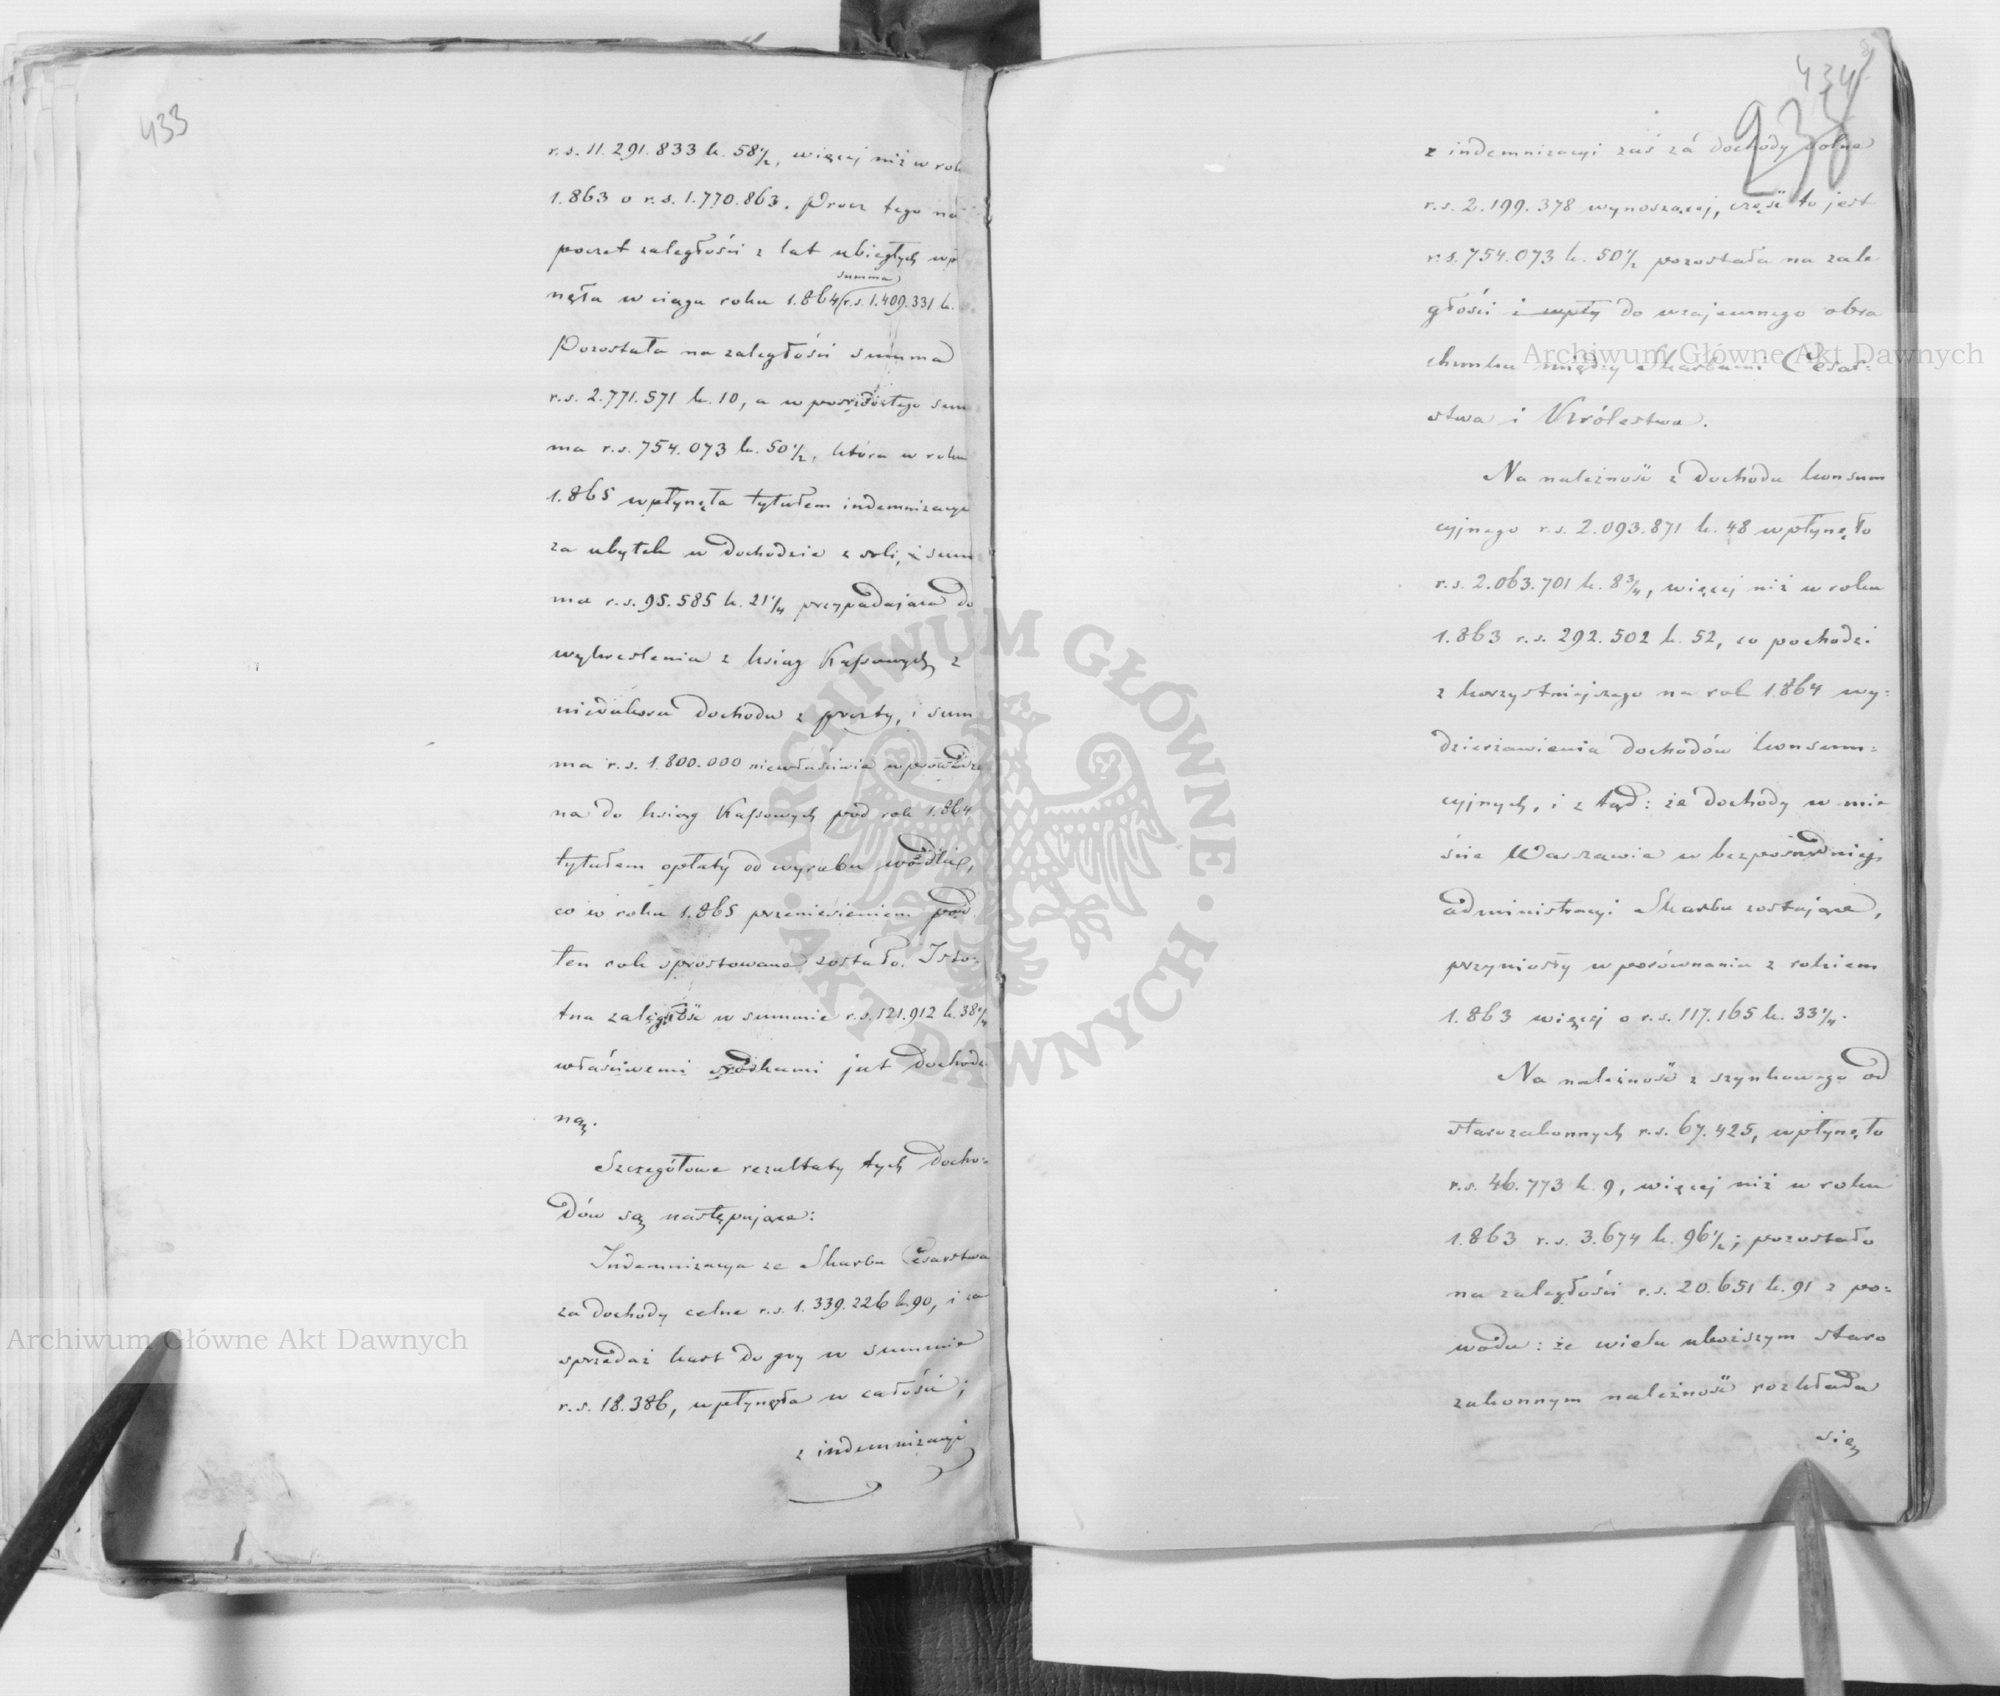 433
r.s. 11.291.833 k. 58½, więcej niż w roku
1.863 o r.s. 1.770.863. Prócz tego na
poczet zaległości z lat ubiegłych wpły
summa
nęła w ciągu roku 1.864 r.s. 1.409.331 k.
Pozostała na zaległości summa
r.s. 2.771.571 k. 10, a w pośród tego sum
ma r.s. 754.073 k. 50½, która w roku
1.865 wpłynęła tytułem indemnizacyi
za ubytek w dochodzie z soli, i sum
ma r.s. 95.585 k. 21¼ przypadająca do
wykreślenia z ksiąg Kassowych z
niedoboru dochodu z poczty, i sum
ma r.s. 1.800.000 niewłaściwie wprowadzo
na do ksiąg Kassowych pod rok 1.864
tytułem opłaty od wyrobu wódki,
co w roku 1.865 przeniesieniem pod
ten rok sprostowane zostało. Isto-
tna zaległość w summie r.s. 121.912 k. 38¼
właściwemi środkami jest dochodzo
ną.
Szczegółowe rezultaty tych docho-
dów są następujące:
Indemnizacya ze Skarbu Cesarstwa
za dochody celne r.s. 1.339.226 k. 90, i za
sprzedaż kart do gry w summie
r.s. 18.386, wpłynęła w całości;
z indemnizacyi
434
z indemnizacyi zaś za dochody solne
r.s. 2.199.378 wynoszącej, część to jest
r.s. 754.073 k. 50½ pozostała na zale
głości i wpły do wzajemnego obra
chunku między Skarbami Cesar-
stwa i Królestwa.
Na należność z dochodu konsum
cyjnego r.s. 2.093.871 k. 48 wpłynęło
r.s. 2.063.701 k. 8¾, więcej niż w roku
1.863 r.s. 292.502 k. 52, co pochodzi
z korzystniejszego na rok 1.864 wy-
dzierżawienia dochodów konsum-
cyjnych, i z tąd: że dochody w mie
ście Warszawie w bezpośredniej
administracyi Skarbu zostające,
przyniosły w porównaniu z rokiem
1.863 więcej o r.s. 117.165 k. 33¼.
Na należność z szynkowego od
starozakonnych r.s. 67.425, wpłynęło
r.s. 46.773 k. 9, więcej niż w roku
1.863 r.s. 3.674 k. 96½; pozostało
na zaległości r.s. 20.651 k. 91 z po-
wodu: że wielu uboższym staro
zakonnym należność rozkłada
się
Archiwum Główne Akt Dawnych
Archiwum Główne Akt Dawnych
ARCHIWUM GŁÓWNE
AKT DAWNYCH